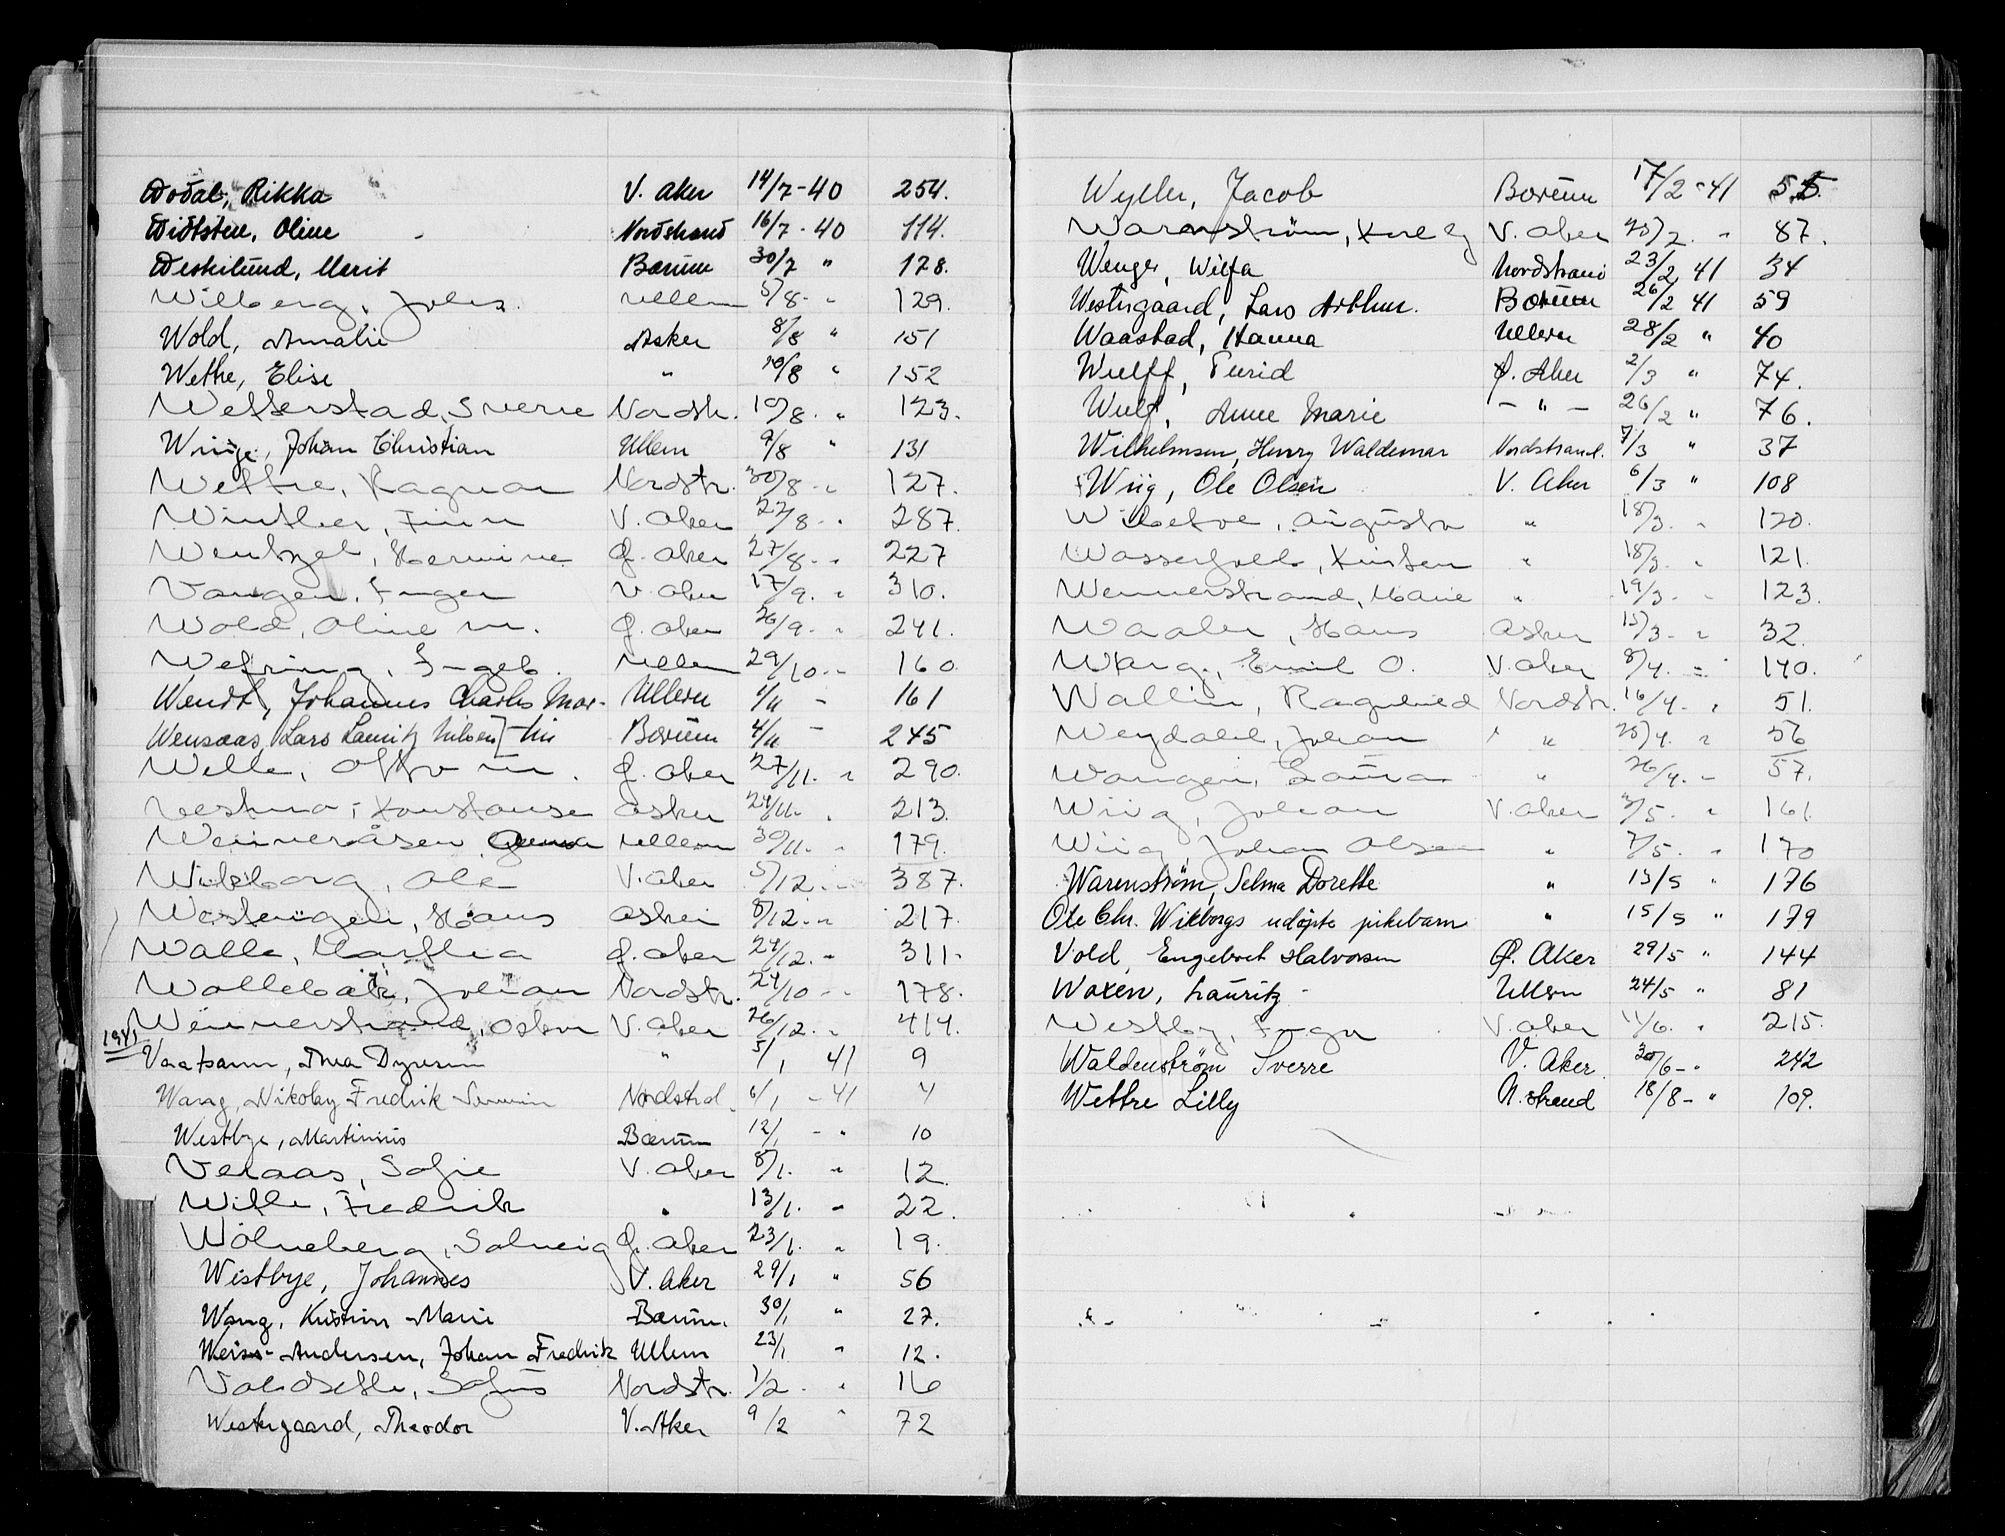 Wodal, Rikka V. Aker 14/7-40 254.
Widtsten, Oline Nordstrand 16/7-40 114.
Westilund, Marit Bærum 30/7 " 178.
Wilberg, Johs. Ullern 5/8 - 129.
Wold, Amalie Asker 8/8 " 151
Wethe, Elise " 10/8 " 152
Wetterstad, Sverre Nordstr. 19/8. " 123.
Winge, Johan Christian Ullern 9/8 " 131
Wettre, Ragnar Nordstr. 30/8 - " 127.
Winther, Finn V. Aker 22/8 - " 287.
Wentzel, Hermine Ø. Aker 27/8 - " 227
Vangen, Inger V. Aker 17/9. " 310.
Wold, Oline M. Ø. Aker 26/9. " 241.
Wefring, Ingeb. Ullern 29/10 - " 160.
Wendt, Johannes Charles Mar- Ullern 1/11 - 161
Wensaas, Lars Lauritz Nilsen [-tin Bærum 4/11 - 245
Welle, Otto M. Ø. Aker 27/11. " 290.
Vestmo, Konstanse Asker 24/11. " 213.
Wenneråsen, Ullern 30/11. " 179.
Wikborg, Ole V. Aker 5/12. - 387.
Westengen, Hans Asker 8/12. " 217.
Walle, Marthea Ø. Aker 24/12. " 311.
Wollebæk, Johan Nordstr. 24/10 - " 178.
Wennerstrand, Oskar V. Aker 26/12. " 414.
1941
Vaatsann, Thea Dyresen " 5/1 41 9
Wang, Nikolay Fredrik Nordstrd. 6/1 - 41 4
Westbye, Martinius Bærum 12/1 - " 10
Veraas, Sofie V. Aker 8/1. " 12.
Wille, Fredrik " 13/1. " 22.
Wolneberg, Solveig Ø. Aker 23/1. " 19.
Wistbye, Johannes V. Aker 29/1 " 56
Wang, Kristine Marie Bærum. 30/1 " 27.
Weiss-Andersen, Johan Fredrik Ullern 23/1 " 12.
Voldsette, Sofus Nordstr. 1/2. " 16
Westergaard, Theodor V. Aker 9/2 " 72
Wyller, Jacob Bærum 17/2 - 41 55.
Warenstrøm, V. Aker 20/2. " 87.
Wenger, Wilfa Nordstrand 23/2 41 34
Westergaard, Lars Arthur. Bærum 26/2 41 59
Waastad, Hanna Ullern 28/2 " 40
Wulff, Turid Ø. Aker 2/3 " 74.
Wulf, Anne Marie - " - 26/2 " 76.
Wilhelmsen, Henry Waldemar Nordstrand. 7/3 " 37
Wiig, Ole Olsen V. Aker 6/3 " 108
Augusta " 18/3. " 120.
Wasserfold, Kirsten " 18/3. " 121.
Wennerstrand, Marie " 19/3. " 123.
Waaler, Hans Asker 15/3. " 32.
Wang, Emil O. V. Aker 8/4. - 140.
Wallin, Ragnhild Nordstr. 16/4. " 51.
Weydahl, Johan " 25/4. " 56
Wangen, Laura " 26/4. " 57.
Wiig, Johan V. Aker 3/5. " 161.
Wiig, Johan Olsen " 7/5. " 170
Warenstrøm, Selma Dorette " 13/5 " 176
Ole Chr. Wikborgs udøpte pikebarn " 15/5 " 179
Vold, Engebret Halvorsen Ø. Aker 29/5 " 144
Woxen, Lauritz Ullern 24/5 " 81
Westby, Inger V. Aker 11/6. " 215.
Waldenstrøm Sverre V. Aker 30/6 - " 242
Wettre Lilly N. strand 18/8 - " 109.